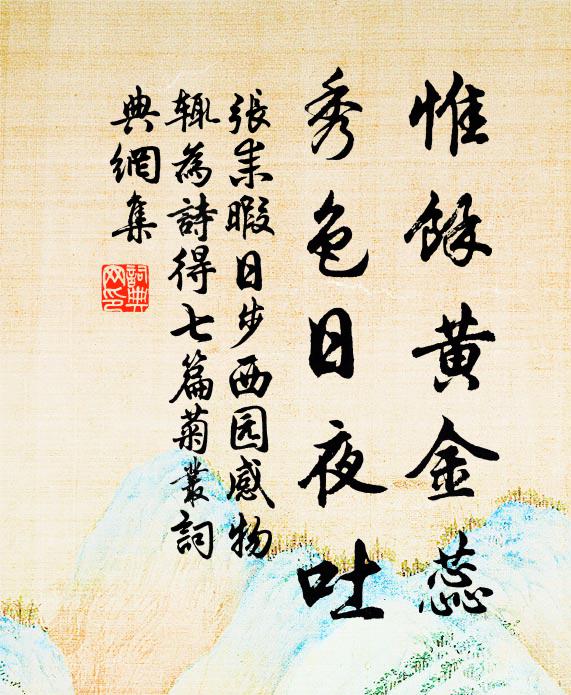 惟餘黄金蕊
秀色日夜吐
張耒暇日步西园感物
輒為詩得七篇菊叢詞
典網集
詞典网印